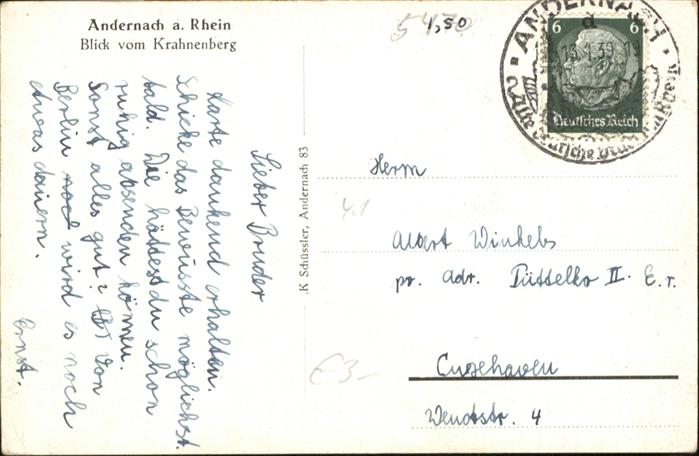 Andernach a. Rhein
Blick vom Krahnenberg
Lieber Bruder
Karte dankend erhalten.
Schicke das Bewusste möglichst
bald. Die hättest du schon
ruhig absenden können.
Sonst alles gut? Von
Berlin wird es noch
etwas dauern.
Ernst.
K Schüssler, Andernach 83
5470
1,50
ANDERNACH
d
13.1.39
Alte deutsche Stadt am Rhein
6 6
Deutsches Reich
Herrn
4.1
Albert Winkels
pr. Adr. Püttelko II. E. r.
€3-
Cuxhaven
Wendtstr. 4